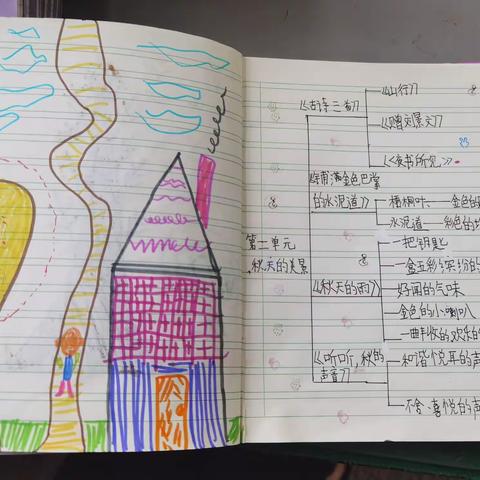 《古诗三首》
《山行》
《赠刘景文》
《夜书所见》
铺满金色巴掌
的水泥道》
梧桐叶——金色的
水泥道——彩色的
第二单元
秋天的美景
《秋天的雨》
一把钥匙
一盒五彩缤纷的
好闻的气味
金色的小喇叭
一曲丰收的欢乐的
《听听,秋的
声音》
和谐悦耳的声
不舍、喜悦的声